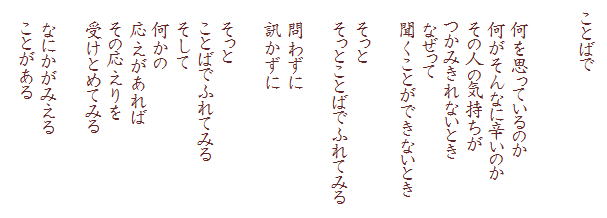 ことばで
何を思っているのか
何がそんなに辛いのか
その人の気持ちが
つかみきれないとき
なぜって
聞くことができないとき
そっと
そっとことばでふれてみる
問わずに
訊かずに
そっと
ことばでふれてみる
そして
何かの
応えがあれば
その応えりを
受けとめてみる
なにかがみえる
ことがある